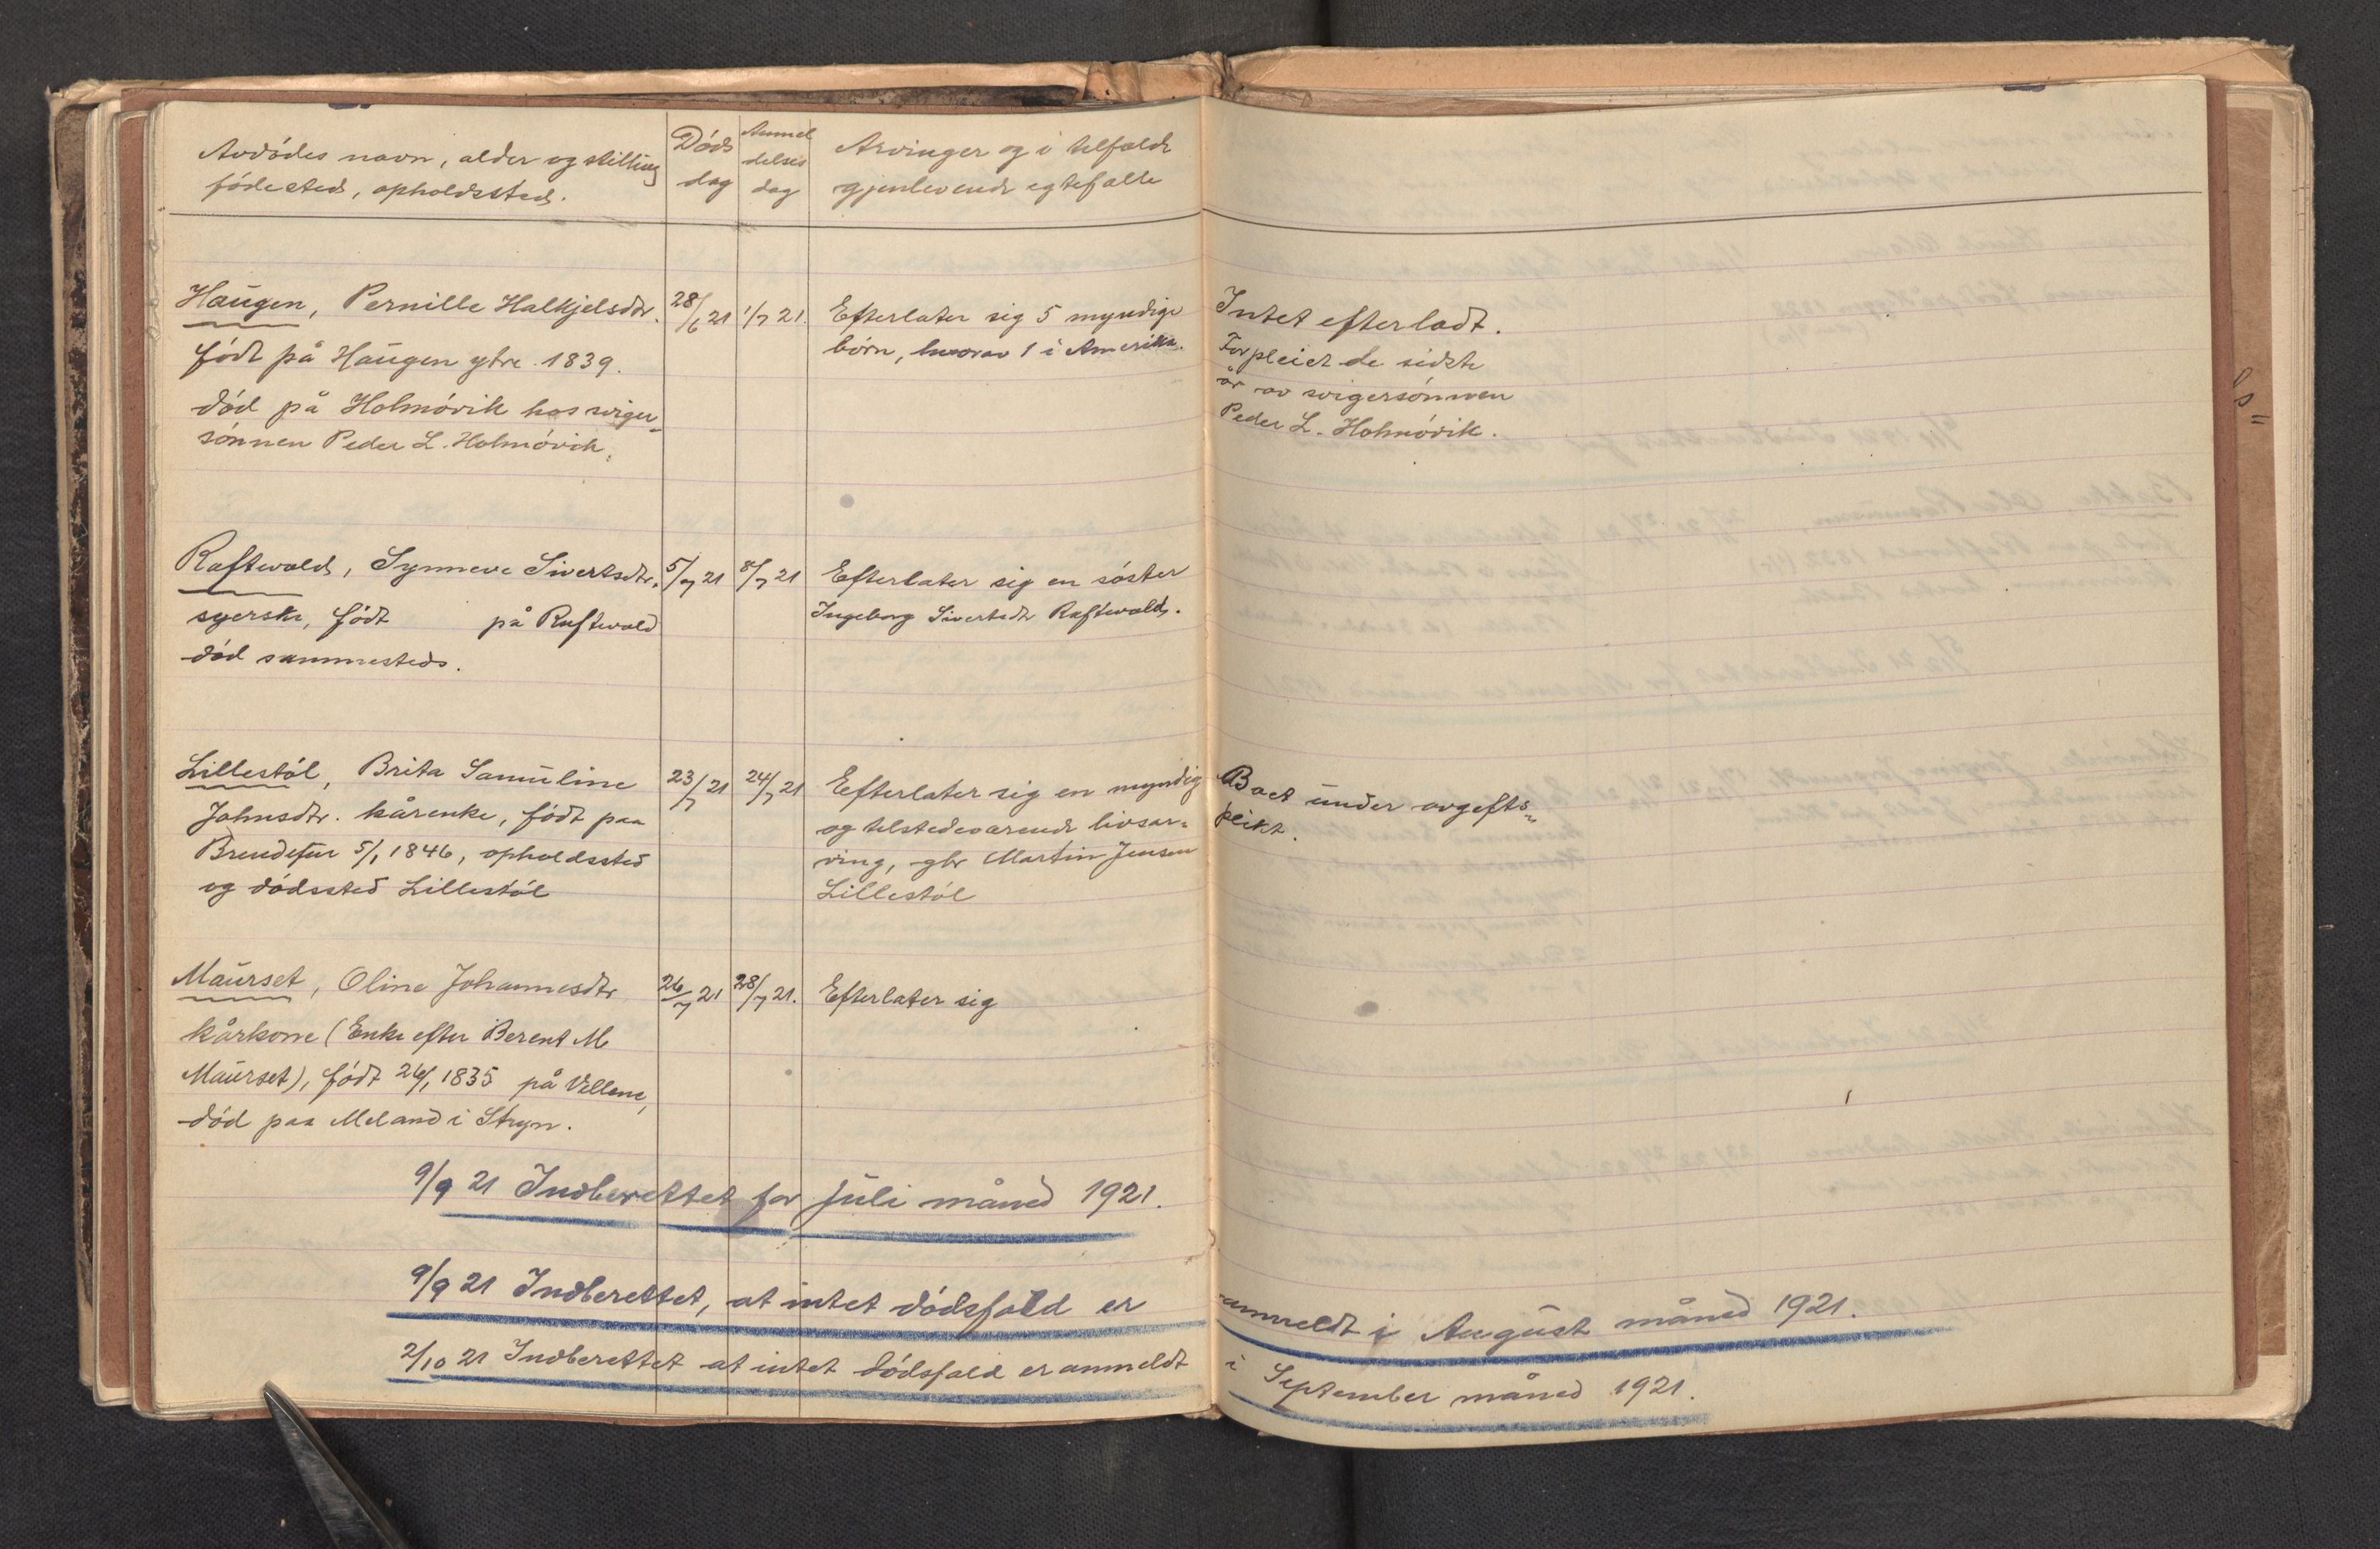 Avdødes navn, alder og stilling
fødested, opholdssted.
Døds
dag
Anmel
delses
dag
Arvinger og i tilfælde
gjenlevende egtefælle
Haugen, Pernille Halkjelsdtr.
født på Haugen ytre 1839.
død på Holmøvik hos sviger-
sønnen Peder L. Holmøvik.
28/6 21
1/7 21.
Efterlater sig 5 myndige
børn, hvorav 1 i Amerika.
Intet efterladt.
Forpleiet de sidste
år av svigersønnen
Peder L. Holmøvik.
Raftevold, Synneve Sivertsdtr.
syerske, født på Raftevold
død sammesteds.
5/7 21
8/7 21
Efterlater sig en søster
Ingeborg Sivertsdtr Raftevold.
Lillestøl, Brita Samuline
Johnsdtr. kårenke, født paa
5/1 1846, opholdssted
og dødssted Lillestøl
23/7 21
24/7 21
Efterlater sig en myndig
og tilstedeværende livsar-
ving, gbr Martin Jensen
Lillestøl
Boet under avgifts-
plikt.
Maurset, Oline Johannesdtr
kårkone (Enke efter Berent M
Maurset), født 26/1 1835 på
død paa Meland i Stryn.
26/7 21
28/7 21.
Efterlater sig
9/9 21 Indberettet for juli måned 1921.
9/9 21 Indberettet, at intet dødsfald er anmeldt i August måned 1921.
2/10 21 Indberettet at intet dødsfald er anmeldt i September måned 1921.